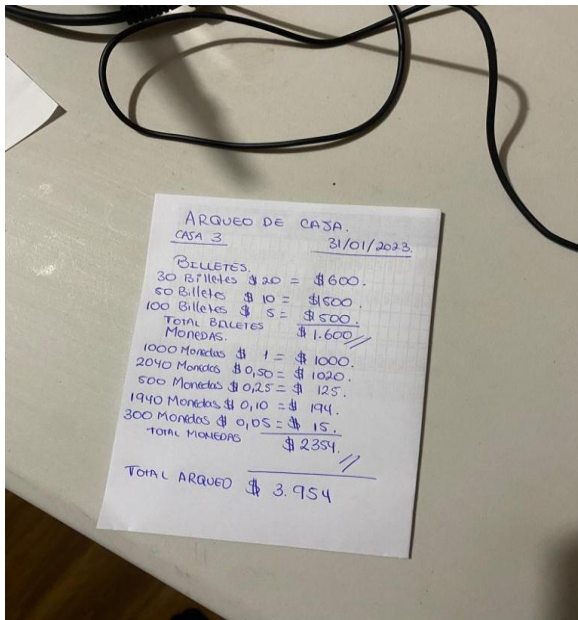 ARQUEO DE CAJA.
CAJA 3
31/01/2023.
BILLETES.
30 Billetes $ 20 = $600.
50 Billetes $ 10 = $500.
100 Billetes $ 5 = $500.
TOTAL BILLETES $1.600
MONEDAS.
1000 Monedas $ 1 = $ 1000.
2040 Monedas $0,50 = $ 1020.
500 Monedas $0,25 = $ 125.
1940 Monedas $ 0,10 = $ 194.
300 Monedas $ 0,05 = $ 15.
TOTAL MONEDAS $ 2354.
TOTAL ARQUEO $ 3.954